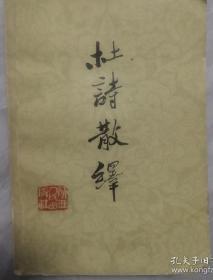 杜詩散繹
孔夫子旧书网